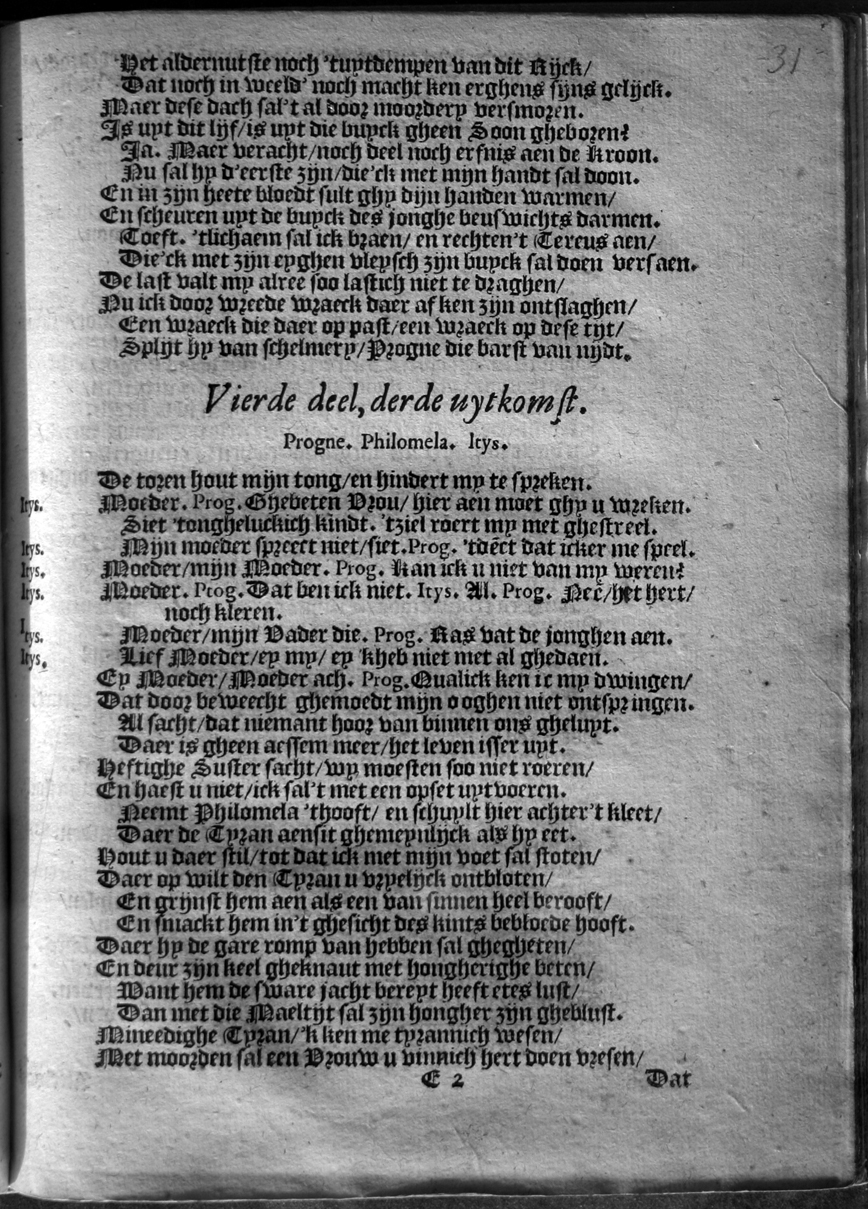 31
Het aldernutste noch 'tuytdempen van dit Rijck/
Dat noch in weeld' noch macht ken erghens sijns gelijck.
Maer dese dach sal't al door moordery versmoren.
Is uyt dit lijf/is uyt die buyck gheen Soon gheboren?
Ja. Maer veracht/noch deel noch erfnis aen de Kroon.
Nu sal hy d'eerste zijn/die'ck met mijn handt sal doon.
En in zijn heete bloedt sult ghy dijn handen warmen/
En scheuren uyt de buyck des jonghe beuswichts darmen.
Toeft. 'tlichaem sal ick braen/ en rechten't Tereus aen/
Die'ck met zijn eyghen vleysch zijn buyck sal doen versaen.
De last valt my alree soo lastich niet te draghen/
Nu ick door wreede wraeck daer af ken zijn ontslaghen/
Een wraeck die daer op past/een wraeck op dese tijt/
Splijt hy van schelmery/Progne die barst van nijdt.
Vierde deel, derde uytkomst.
Progne. Philomela. Itys.
De toren hout mijn tong/en hindert my te spreken.
Itys. Moeder. Prog. Ghebeten Vrou/ hier aen moet ghy u wreken.
Siet 'tongheluckich kindt. 'tziel roert my met ghestreel.
Itys. Mijn moeder spreeckt niet/siet. Prog. 'tdēct dat icker me speel.
Itys. Moeder/mijn Moeder. Prog. Kan ick u niet van my weren?
Itys. Moeder. Prog. Dat ben ick niet. Itys. Al. Prog. Neē/het hert/
noch kleren.
Itys. Moeder/mijn Vader die. Prog. Ras vat de jonghen aen.
Itys. Lief Moeder/ey my/ ey 'kheb niet met al ghedaen.
Ey Moeder/Moeder ach. Prog. Qualick ken ic my dwingen/
Dat door beweecht ghemoedt mijn ooghen niet ontspringen.
Al sacht/dat niemant hoor van binnen ons gheluyt.
Daer is gheen aessem meer/het leven isser uyt.
Heftighe Suster sacht/wy moesten soo niet roeren/
En haest u niet/ick sal't met een opset uytvoeren.
Neemt Philomela 'thooft/ en schuylt hier achter't kleet/
Daer de Tyran aensit ghemeynlijck als hy eet.
Hout u daer stil/tot dat ick met mijn voet sal stoten/
Daer op wilt den Tyran u vryelijck ontbloten/
En grijnst hem aen als een van sinnen heel berooft/
En smackt hem in't ghesicht des kints bebloede hooft.
Daer hy de gare romp van hebben sal ghegheten/
En deur zijn keel gheknaut met hongherighe beten/
Want hem de sware jacht bereyt heeft etes lust/
Dan met die Maeltijt sal zijn hongher zijn gheblust.
Mineedighe Tyran/'k ken me tyrannich wesen/
Met moorden sal een Vrouw u vinnich hert doen vresen/
E 2 Dat